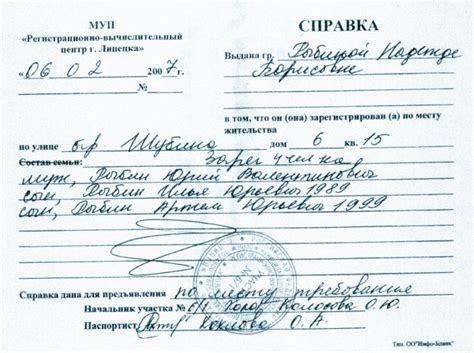 МУП
«Регистрационно-вычислительный
центр г. Липецка»
«06 02 2007 г.
СПРАВКА
Выдана гр. Рыбицкой Надежде
Борисовне
в том, что он (она) зарегистрирован (а) по месту
жительства
по улице б-р Шубина дом 6 кв. 15
Состав семьи: Зарег чел ка
муж, Рыбин Юрий Валентинович
сын, Рыбин Илья Юрьевич 1989
сын, Рыбин Артем Юрьевич 1999
Справка дана для предъявления по месту требования
Начальник участка № 6/1 Колосова О.Ю.
Паспортист: Хохлова О. А.
Тип. ОО"Инфо-Бланк"